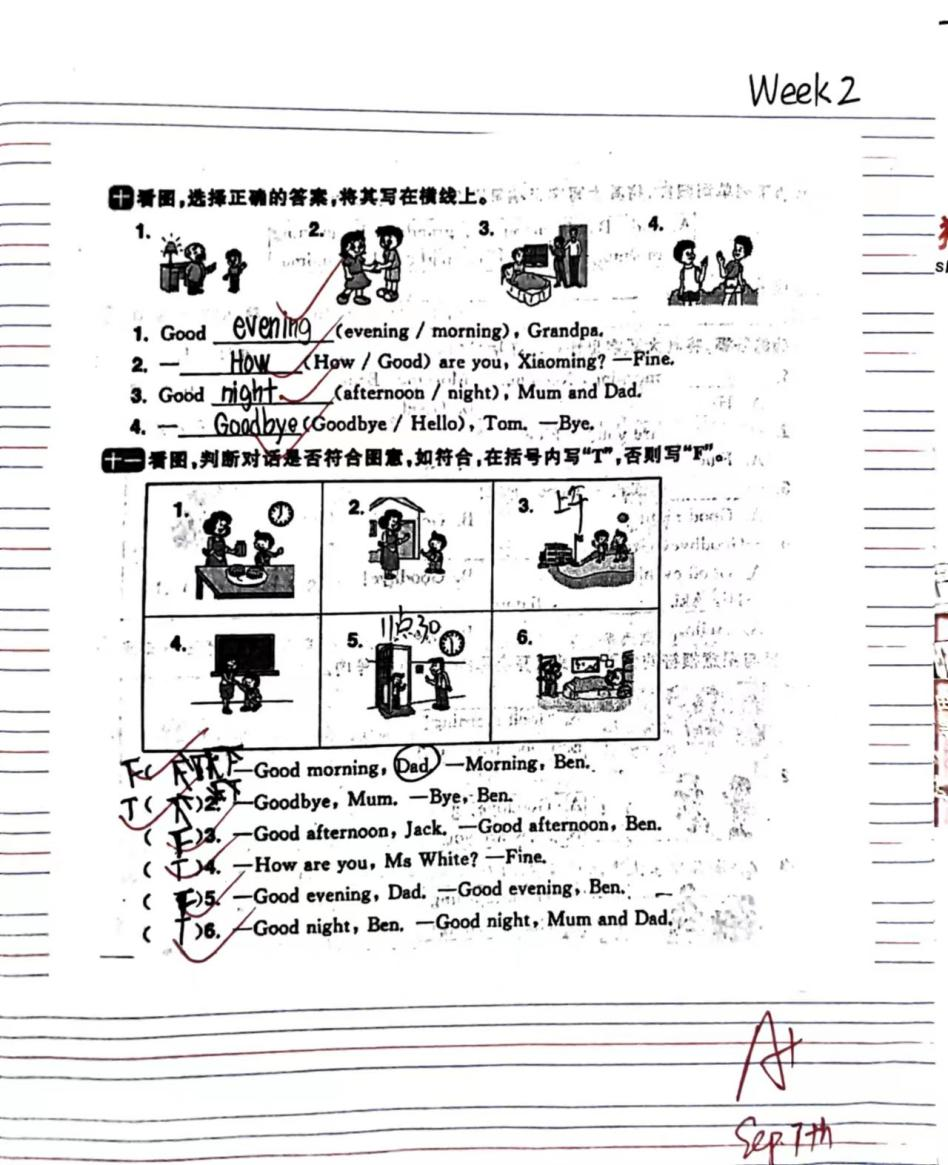 Week 2
十 看图,选择正确的答案,将其写在横线上。
1. 2. 3. 4.
1. Good evening (evening / morning), Grandpa.
2. — How (How / Good) are you, Xiaoming? —Fine.
3. Good night (afternoon / night), Mum and Dad.
4. — Goodbye (Goodbye / Hello), Tom. —Bye.
十一 看图,判断对话是否符合图意,如符合,在括号内写“T”,否则写“F”。
1. 2. 3. 上午
4. 5. 11点30 6.
F( —Good morning, Dad. —Morning, Ben.
T( )2. —Goodbye, Mum. —Bye, Ben.
( F )3. —Good afternoon, Jack. —Good afternoon, Ben.
( T )4. —How are you, Ms White? —Fine.
( F )5. —Good evening, Dad. —Good evening, Ben.
( T )6. —Good night, Ben. —Good night, Mum and Dad.
A+
Sep 7th